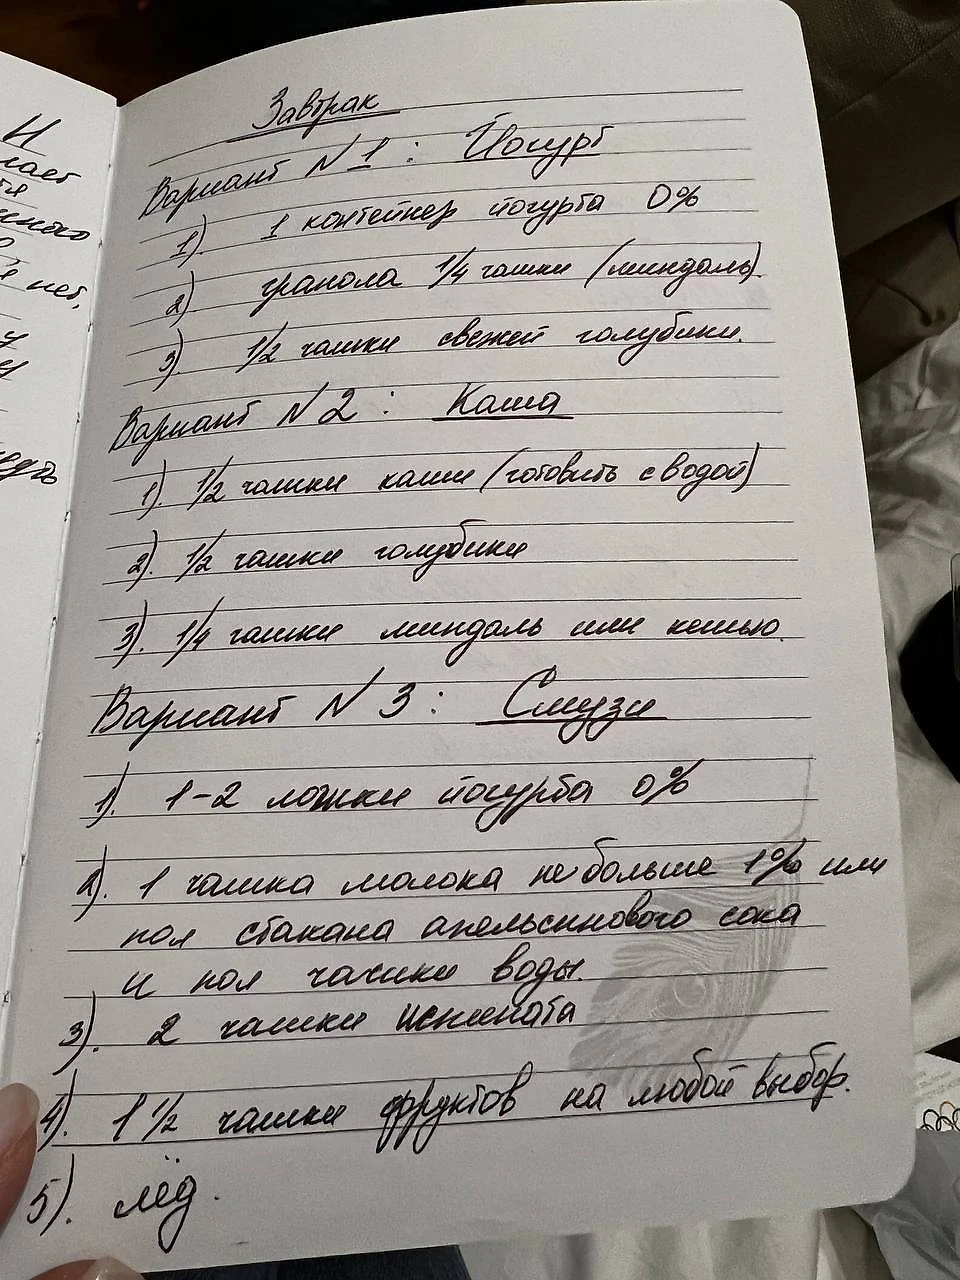 Завтрак
Вариант N 1 : Йогурт
1). 1 контейнер йогурта 0%
2) гранола 1/4 чашки (миндаль).
3) 1/2 чашки свежей голубики.
Вариант N 2 : Каша
1). 1/2 чашки каши (готовить с водой)
2). 1/2 чашки голубики
3). 1/4 чашки миндаль или кешью.
Вариант N 3 : Смузи
1). 1-2 ложки йогурта 0%
2). 1 чашка молока не больше 1% или
пол стакана апельсинового сока
и пол чашки воды.
3). 2 чашки шпината
4). 1 1/2 чашки фруктов на любой выбор.
5). лёд.